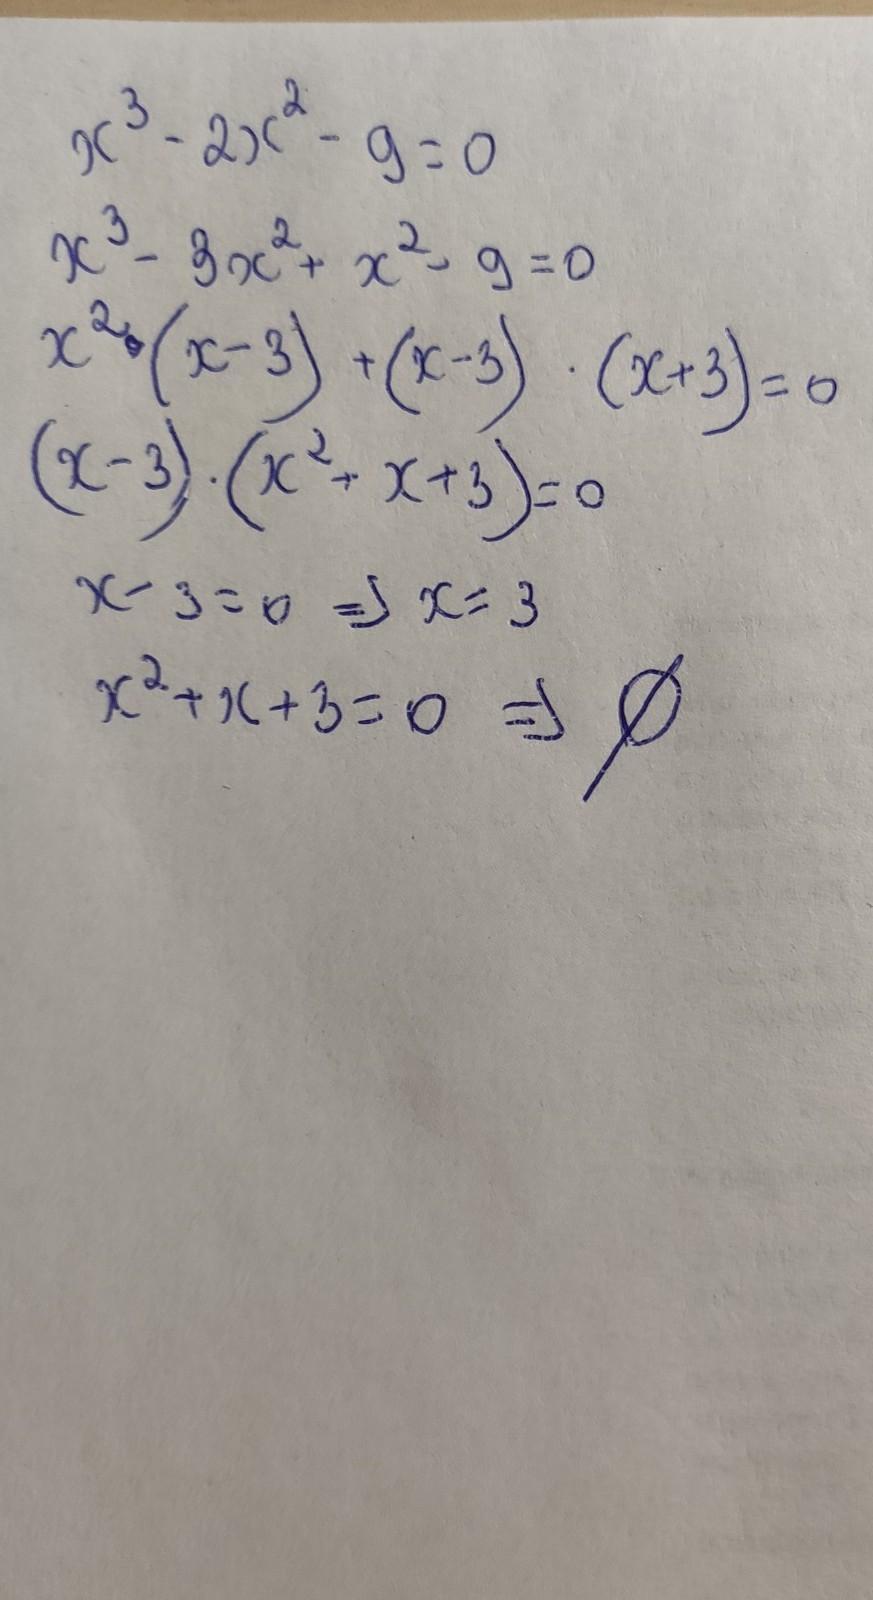 x³ - 2x² - 9 = 0
x³ - 3x² + x² - 9 = 0
x² · (x - 3) + (x - 3) · (x + 3) = 0
(x - 3) · (x² + x + 3) = 0
x - 3 = 0 ⇒ x = 3
x² + x + 3 = 0 ⇒ ∅